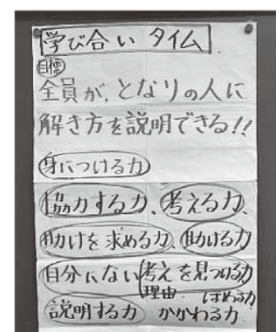 学び合い タイム
目標
全員が、となりの人に
解き方を説明できる!!
身につける力
協力する力、考える力、
助けを求める力、助ける力
自分にない考えを見つける力
理由 ほめる力
説明する力 かかわる力